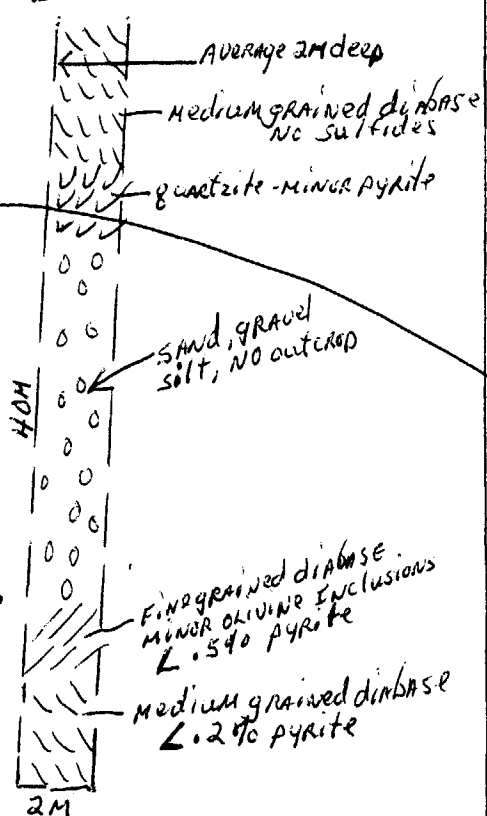 AVERAGE 2M deep
MEDIUM GRAINED diABASE
NO sulfides
quartzite - MINOR PYRITE
SAND, GRAVEL
silt, NO OUTCROP
40M
FINE GRAINED diABASE
MINOR OLIVINE INCLUSIONS
< .5% PYRITE
MEDIUM GRAINED diABASE
< .2% PYRITE
2M